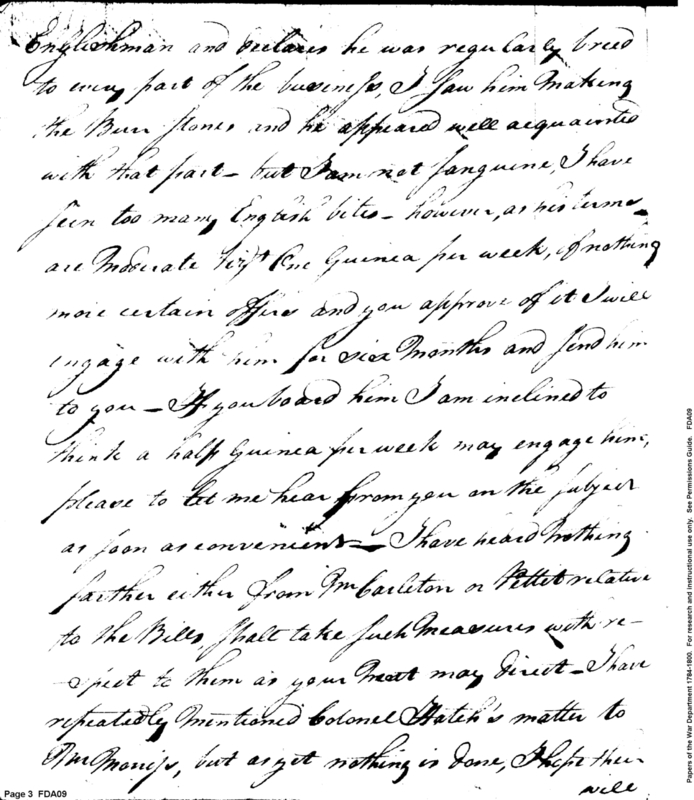 Englishman and declares he was regularly breed
to every part of the business, I saw him making
the Burr stones and he appeared well acquainted
with that part – but I am not sanguine, I have
seen too many English bites – however, as his terms
are Moderate Vizt One Guinea per week, if nothing
more certain offers and you approve of it I will
engage with him for six Months and send him
to you – If you board him I am inclined to
think a half Guinea per week may engage him,
please to let me hear from you on the subject
as soon as convenient – I have heard Nothing
farther either from Mr Carleton or Pettit relative
to the Bills, shall take such Measures with re-
-spect to them as your Next may direct – I have
repeatedly Mentioned Colonel Hatch's matter to
Mr Morriss, but as yet nothing is done, I hope their
will
Page 3 FDA09
Papers of the War Department 1784-1800. For research and instructional use only. See Permissions Guide. FDA09